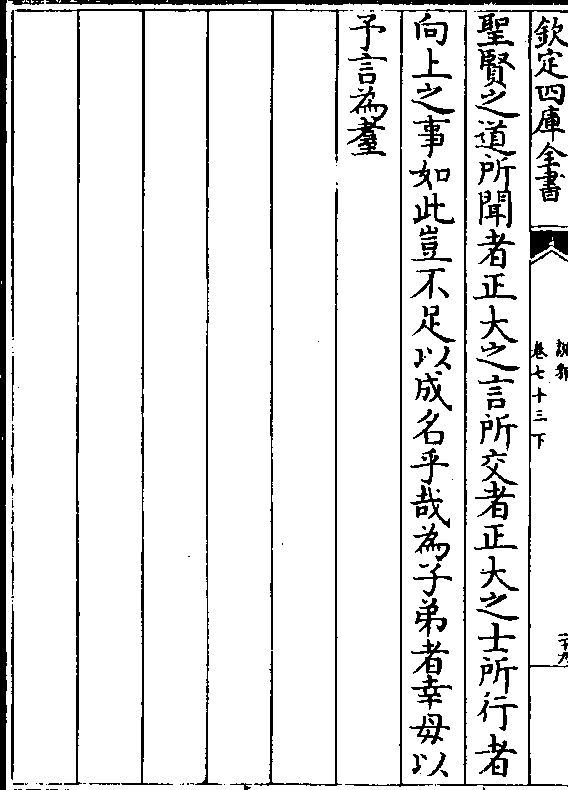 欽定四庫全書
說郛
卷七十三下
二十九
聖賢之道所聞者正大之言所交者正大之士所行者
向上之事如此豈不足以成名乎哉為子弟者幸毋以
予言為耄